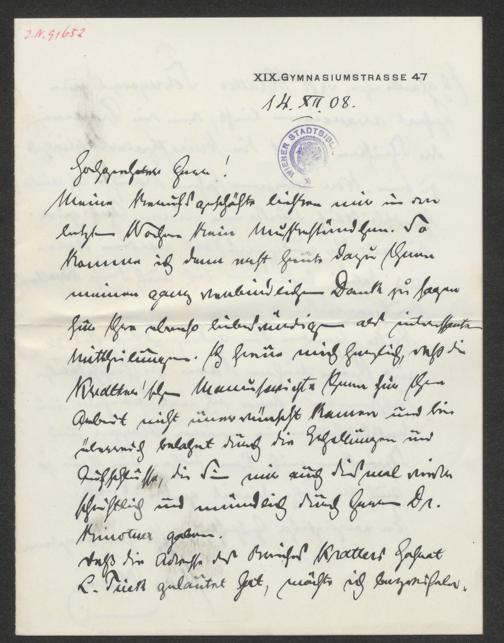 J.N. 91652
XIX. GYMNASIUMSTRASSE 47
14. XII. 08.
WIENER STADTBIBL
Hochgeehrter Herr!
Meine Berufsgeschäfte ließen mir in den
letzten Wochen kein Mußestündchen. So
komme ich denn erst heute dazu Ihnen
meinen ganz verbindlichen Dank zu sagen
für Ihre ebenso liebenswürdigen als interessanten
Mittheilungen. Ich freue mich herzlich, daß die
Kratter'schen Manuscripte Ihnen für Ihre
Arbeit nicht unerwünscht kamen und bin
überreich belohnt durch die und
Aufschlüsse, die Sie mir auch diesmal wieder
schriftlich und mündlich durch Herrn Dr.
gaben.
Daß die Adresse des Briefes Kratters
L. Tieck gelautet hat, möchte ich bezweifeln.